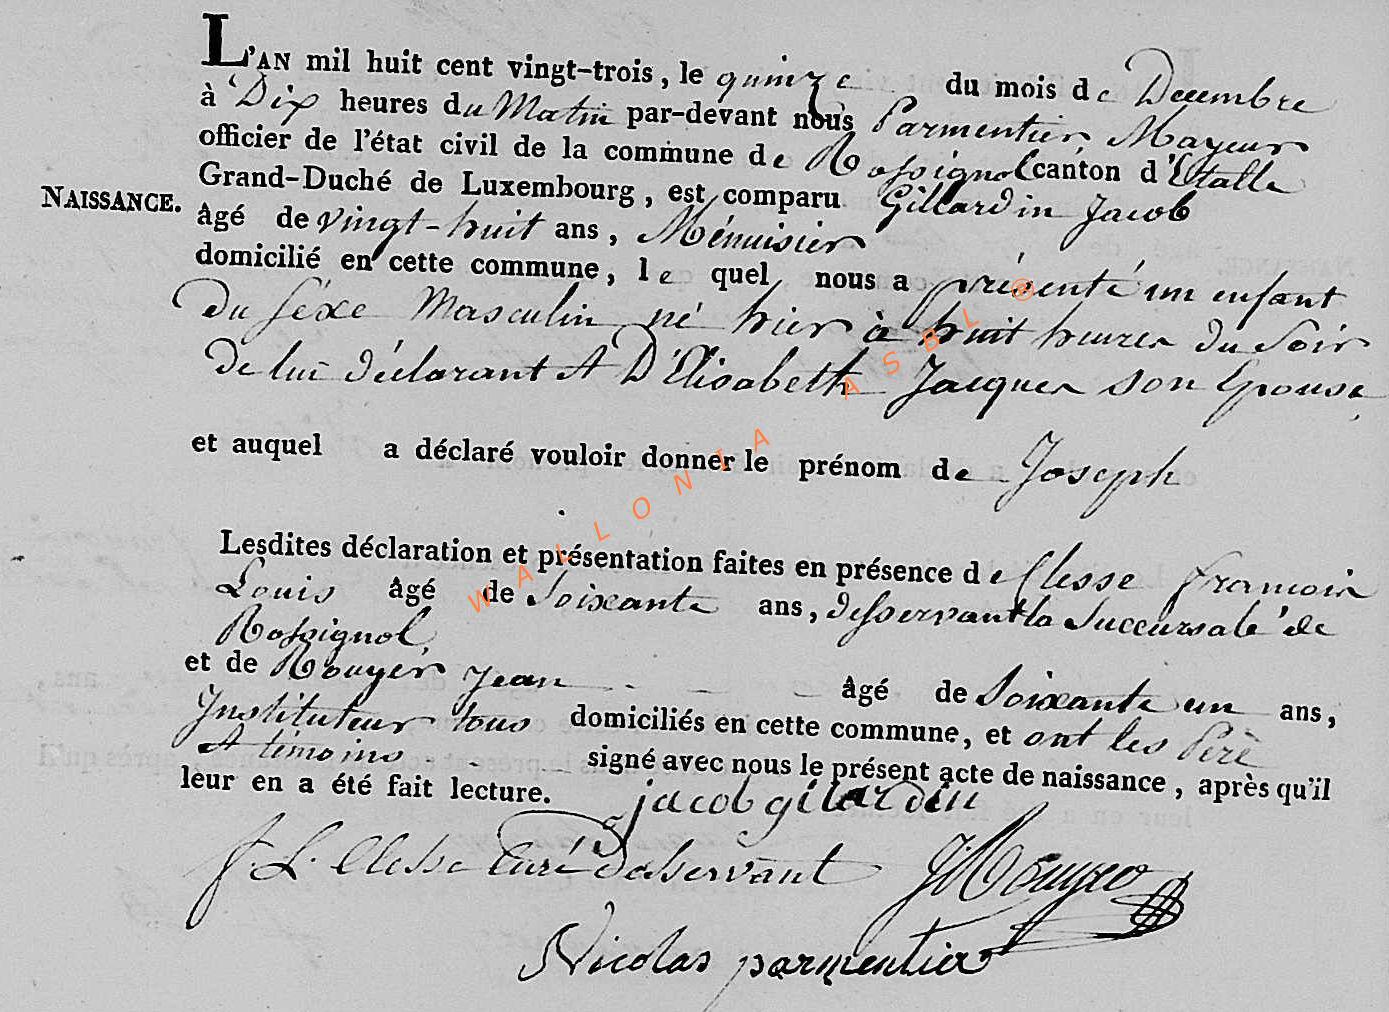 L'AN mil huit cent vingt-trois, le quinze du mois de Decembre
à Dix heures du Matin par-devant nous Parmentier, Mayeur
officier de l'état civil de la commune de Rossignol canton d'Etalle
Grand-Duché de Luxembourg, est comparu Gillardin Jacob
NAISSANCE.
âgé de vingt-huit ans, Ménuisier
domicilié en cette commune, le quel nous a présenté un enfant
du séxe Masculin né hier à huit heures du Soir
de lui déclarant et D'Elisabeth Jacques son Epouse,
et auquel a déclaré vouloir donner le prénom de Joseph
Lesdites déclaration et présentation faites en présence de Clesse francois
Louis âgé de Soixante ans, desservant la Succursale de
Rossignol,
et de Rouyer Jean âgé de Soixante un ans,
Instituteur tous domiciliés en cette commune, et ont les Perè
et témoins signé avec nous le présent acte de naissance, après qu'il
leur en a été fait lecture.
jacob gilardin
f L. Clesse Curé desservant J Rouyer
Nicolas parmentier
WALLONIA ASBL ®